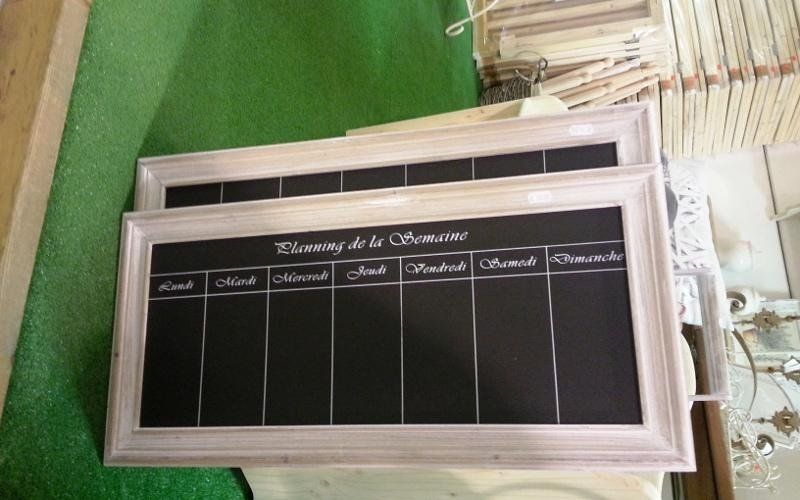 Planning de la Semaine
Lundi Mardi Mercredi Jeudi Vendredi Samedi Dimanche